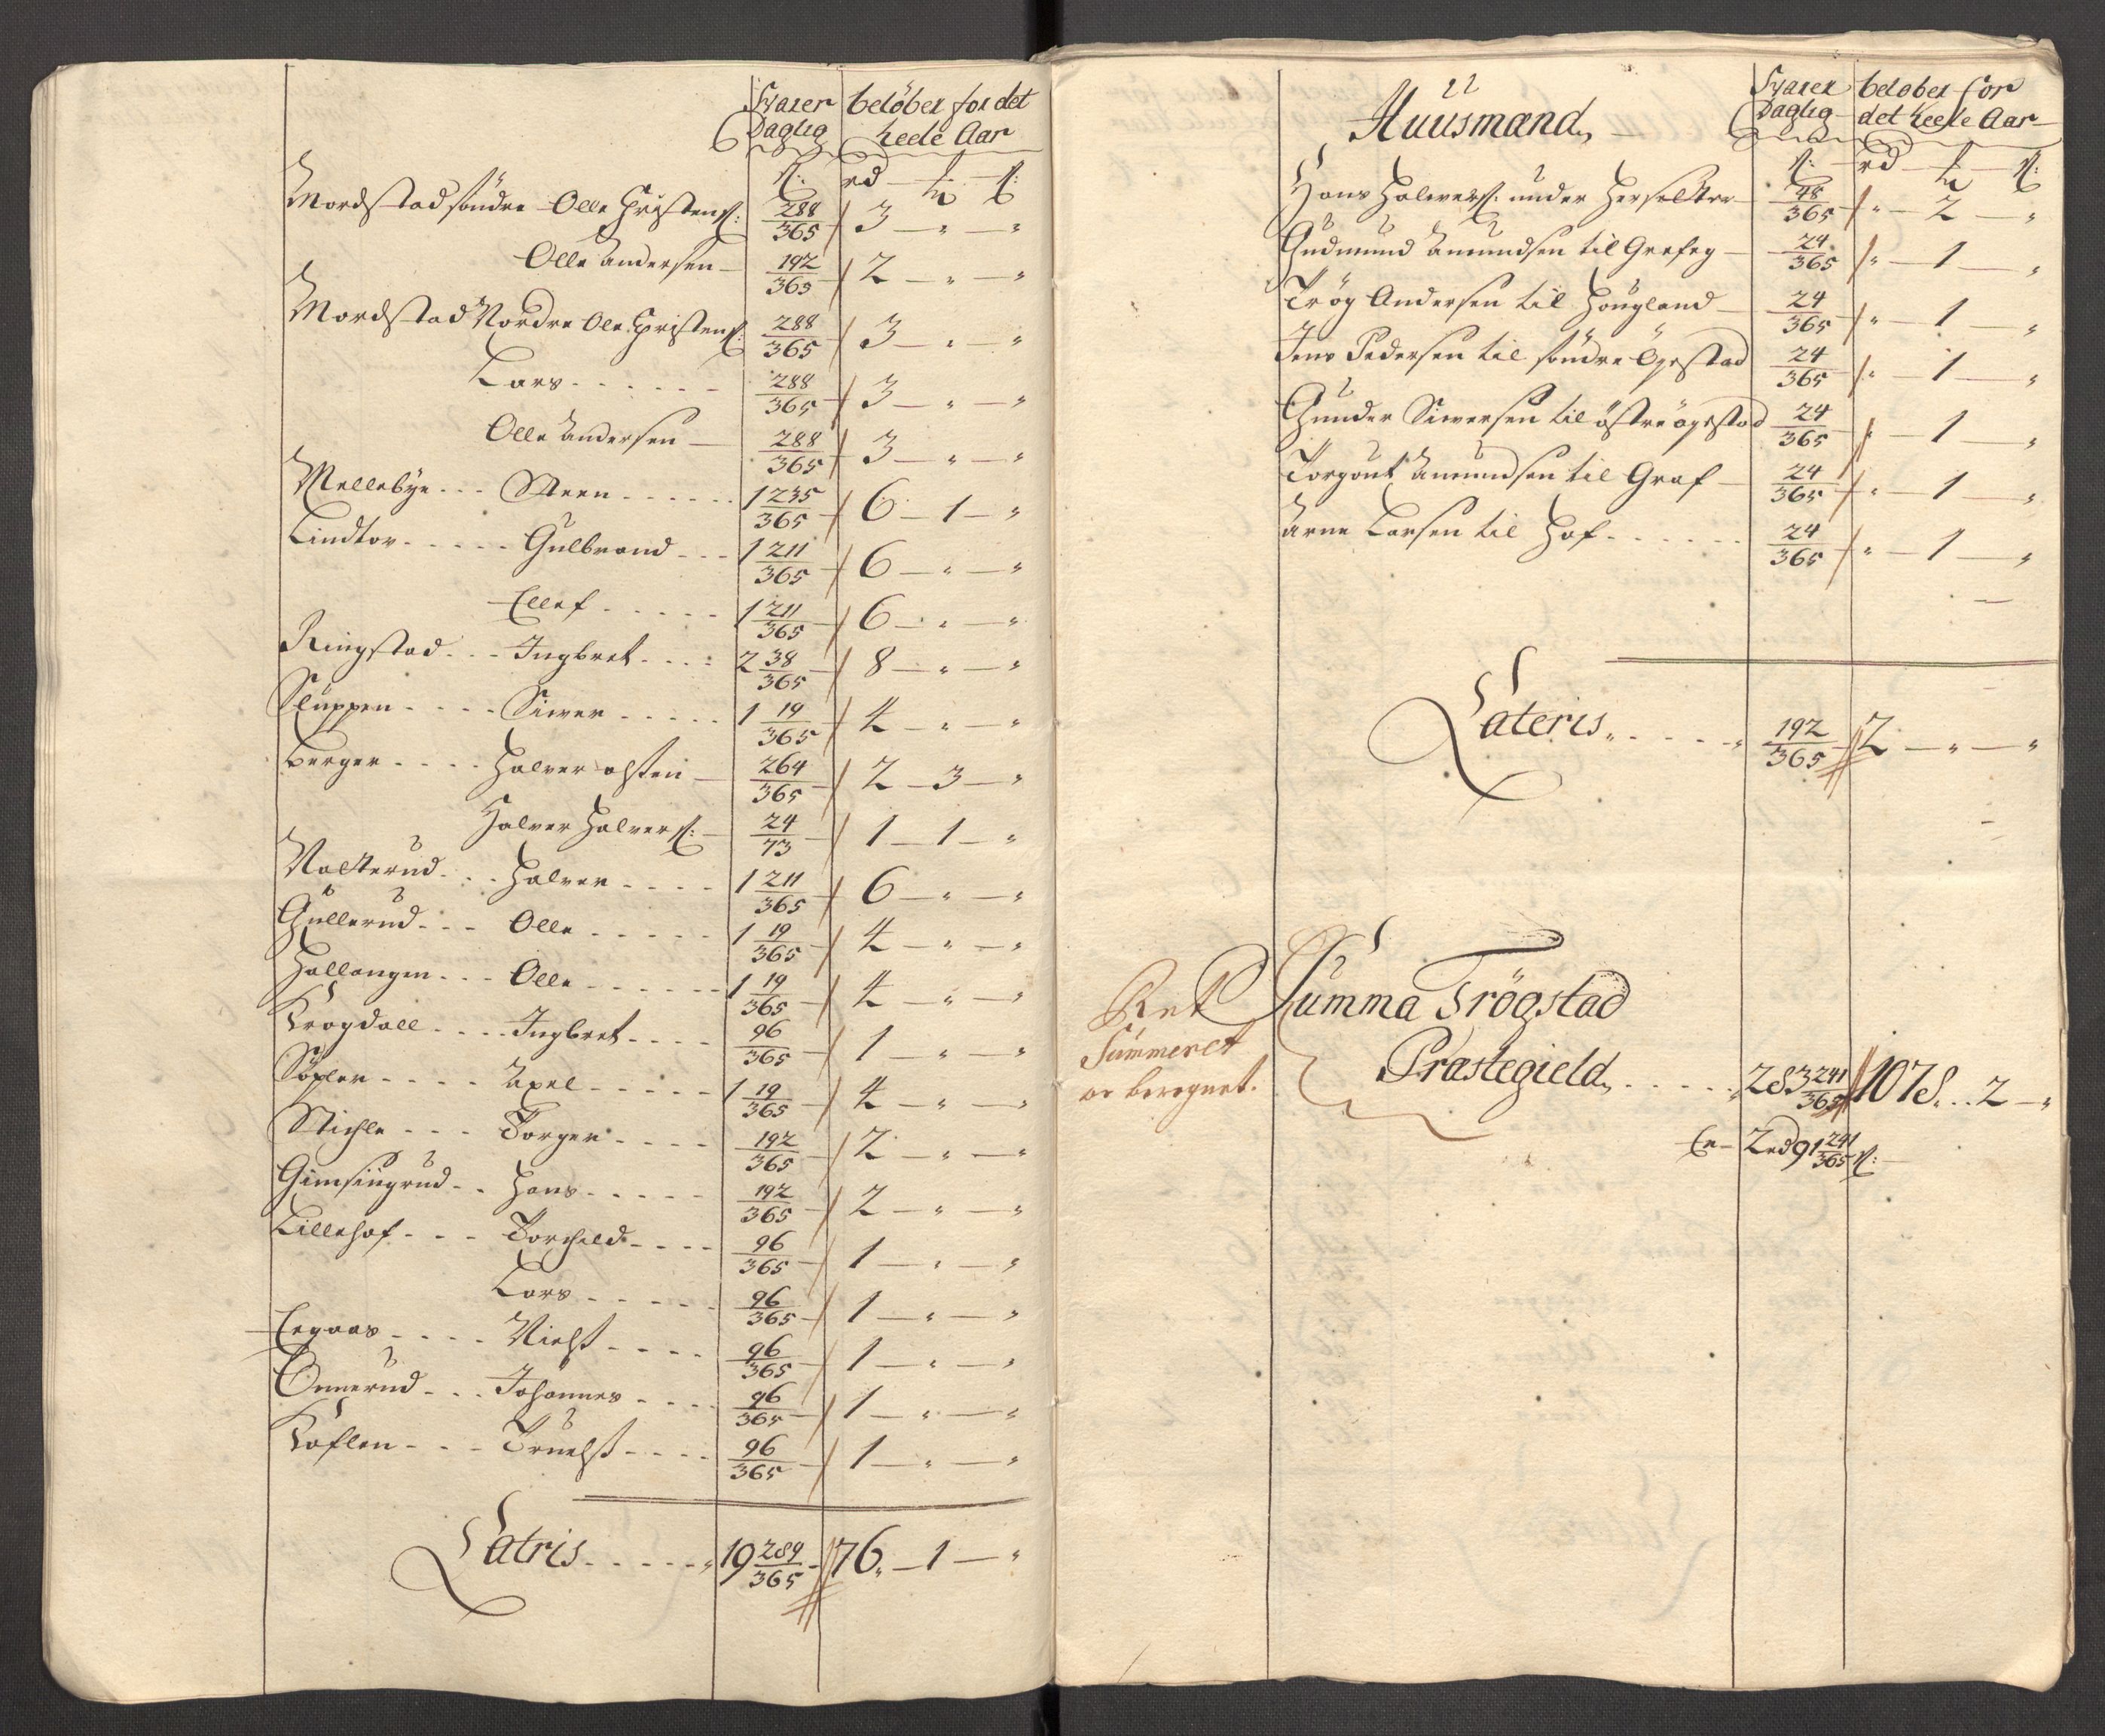 Svarer Daglig | beløber for det heele Aar
ß: | rd — ₶ — ß:
Mordstad söndre Olle Christenß: 288/365 3 — „ — „
Olle Andersen — 192/365 2 — „ — „
Mordstad Nordre Ole Christenß: 288/365 3 — „ — „
Lars - - - - - - 288/365 3 — „ — „
Olle Andersen — 288/365 3 — „ — „
Mellebye - - - Steen - - - - - - 1 235/365 6 — 1 — „
Lindtor - - - - - Gulbrand - - - 1 211/365 6 — „ — „
Ellef - - - - - 1 211/365 6 — „ — „
Ringstad - - - Ingbret - - - - 2 38/365 8 — „ — „
Sluppen - - - - Siver - - - - - 1 19/365 4 — „ — „
Berger - - - - Halver olsten — 264/365 2 — 3 — „
Halver Halverß: — 24/73 1 — 1 — „
Nalterud - - - Halver - - - - 1 211/365 6 — „ — „
Gullerud - - - Olle - - - - - 1 19/365 4 — „ — „
Hallangen - - - Olle - - - - - - 1 19/365 4 — „ — „
Krogdall - - - - Ingbret - - - - 96/365 1 — „ — „
Söpler - - - - Axel - - - - - 1 19/365 4 — „ — „
Stichle - - - Torger - - - - 192/365 2 — „ — „
Gimsingrud - - Hans - - - - - 192/365 2 — „ — „
Lillehof - - - Torchild - - - - 96/365 1 — „ — „
Lars - - - - - 96/365 1 — „ — „
Eegaas - - - - Nielß - - - - 96/365 1 — „ — „
Onnerud - - - Johannes - - - - 96/365 1 — „ — „
Köflen - - - Truelß - - - - 96/365 1 — „ — „
Latris - - - - - „ 19 289/365 76 „ — 1 — „
Huusmænd, —
Svarer Daglig | beløber for det heele Aar
ß: — rd — ₶ — ß:
Hans Halverß: under Herseltter — 48/365 „ — 2 — „
Gudmund Amundsen til Grefeg — 24/365 „ — 1 — „
Trög Andersen til Hougland — 24/365 „ — 1 — „
Jens Pedersen til söndre Opstad 24/365 „ — 1 — „
Gunder Siversen til östre öpstad 24/365 „ — 1 — „
Torgout Amundsen til Graf — 24/365 „ — 1 — „
Arne Larsen til Hof - - - - - - 24/365 „ — 1 — „
Lateris „ - - - - „ 192/365 2 — „ — „
Ret
Summeret
oc beregnet.
Summa Trögstad
Præstegield, - - - - - „ 283 241/365 1078 . . . 2 — „
Er — 2 rd 91 241/365 ß: